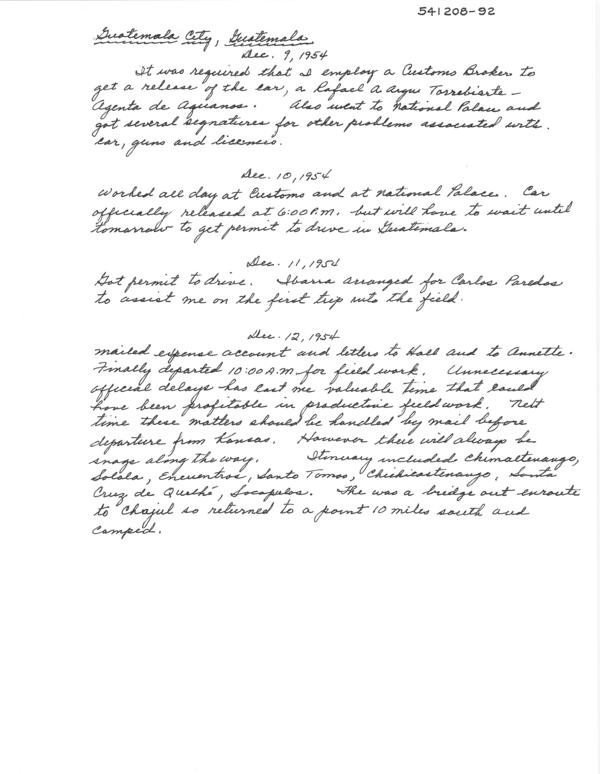 541208-92
Guatemala City, Guatemala
Dec. 9, 1954
It was required that I employ a Customs Broker to
get a release of the car, a Rafael A Argus Torrebiarte –
Agenta de Aguanos. Also went to National Palace and
got several segnatures for other problems associated with
car, guns and licensis.
Dec. 10, 1954
Worked all day at Customs and at National Palace. Car
officially released at 6:00 P.M. but will have to wait until
tomorrow to get permit to drive in Guatimala.
Dec. 11, 1954
Got permit to drive. Ibarra arranged for Carlos Paredos
to assist me on the first trip into the field.
Dec. 12, 1954
Mailed expense account and letters to Hall and to Annette.
Finally departed 10:00 A.M. for field work. Unnecessary
official delays has cost me valuable time that could
have been profitable in productive field work. Next
time these matters should be handled by mail before
departure from Kansas. However there will always be
snags along the way. Itinuary included Chimaltenango,
Solola, Encuentros, Santo Tomas, Chichicastenango, Santa
Cruz de Quiché, Socapulos. The was a bridge out enroute
to Chajul so returned to a point 10 miles south and
camped.